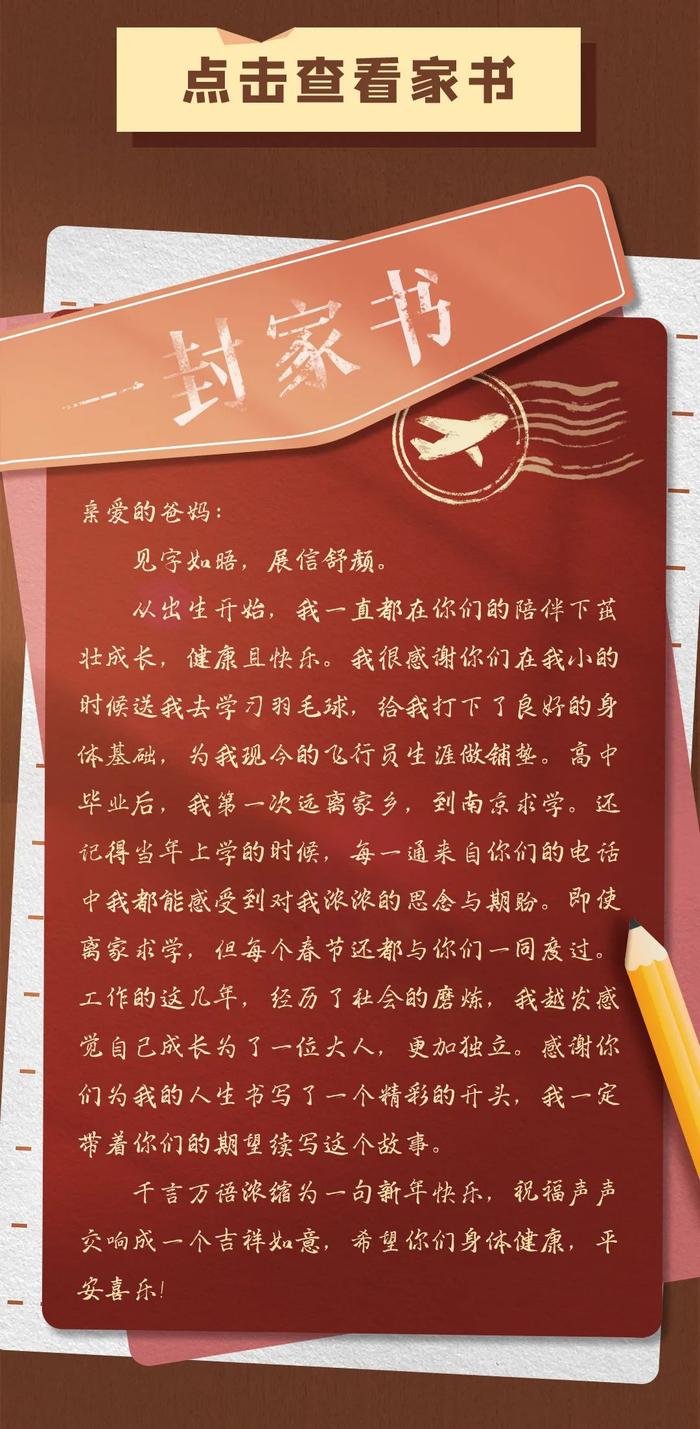 点击查看家书
一封家书
亲爱的爸妈：
见字如晤，展信舒颜。
从出生开始，我一直都在你们的陪伴下茁
壮成长，健康且快乐。我很感谢你们在我小的
时候送我去学习羽毛球，给我打下了良好的身
体基础，为我现今的飞行员生涯做铺垫。高中
毕业后，我第一次远离家乡，到南京求学。还
记得当年上学的时候，每一通来自你们的电话
中我都能感受到对我浓浓的思念与期盼。即使
离家求学，但每个春节还都与你们一同度过。
工作的这几年，经历了社会的磨炼，我越发感
觉自己成长为了一位大人，更加独立。感谢你
们为我的人生书写了一个精彩的开头，我一定
带着你们的期望续写这个故事。
千言万语浓缩为一句新年快乐，祝福声声
交响成一个吉祥如意，希望你们身体健康，平
安喜乐！